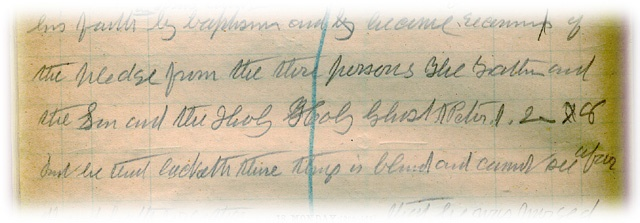 his faith by baptism and by became
of
the pledge from the three persons The Father and
the Son and the Holy Holy Ghost Peter 1. 2 8
but he that lacketh these things is blind and cannot see afar